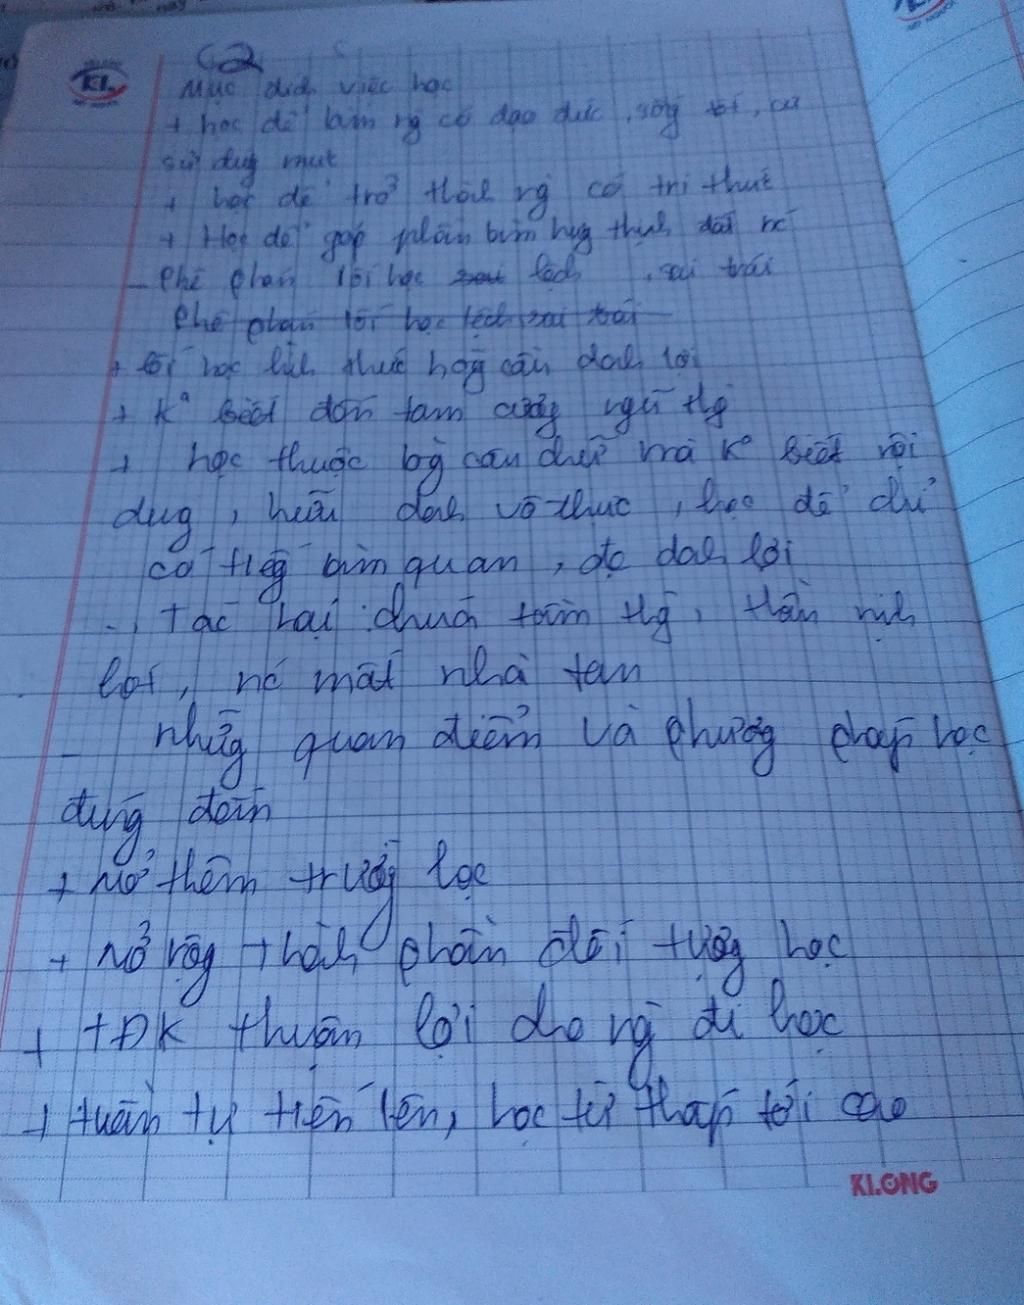 C2
Mục đích việc học
+ học để làm ng có đạo đức, sống tốt, cư
sử đúg mực
+ học để trở thàh ng có tri thức
+ Học để góp phần làm hưg thịh đất nc
- Phê phán lối học lệch, sai trái
Phê phán lối học lệch sai trái
+ lối học hìh thức hòg cầu dah lợi
+ K° biết đến tam cươg ngũ thg
+ học thuộc lòg câu chữ mà K° biết nội
dug, hữu dah vô thực, học để chỉ
có tiếg làm quan, đc dah lợi
- Tác hại: chuá tầm thg, thần nịh
hót, nc mất nhà tan
- nhữg quan điểm và phươg pháp học
đúg đắn
+ Mở thêm trườg học
+ Mở rộg thàh phần đối tượg học
+ TĐK thuận lợi cho ng đi học
+ tuần tự tiến lên, học từ thấp tới cao
KLONG